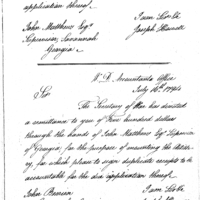 application thereof
I am Sir &c
John Matthews Esqr
Joseph Howell
Supervisor, Savannah
Georgia
W. D. Accountants Office
July 16th 1794
Sir
The Secretary of War has directed
a remittance to you of Five hundred dollars
through the hands of John Matthews Esqr Supervisor
of Georgia for the purpose of recruiting the
for which please to sign duplicate receipts to be
accountable for the due application thereof
I am Sir &c
John